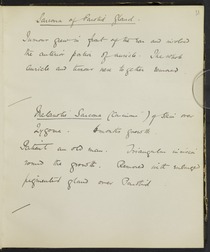 Sarcoma of Parotid Gland.
Tumour grew in front of the ear and involved
the anterior part of auricle. The whole
auricle and tumour were together removed
Melanotic Sarcoma of Skin over
Zygoma. growth.
Patient an old man. Triangular incision
round the growth. Removed with enlarged
pigmented gland over Parotid